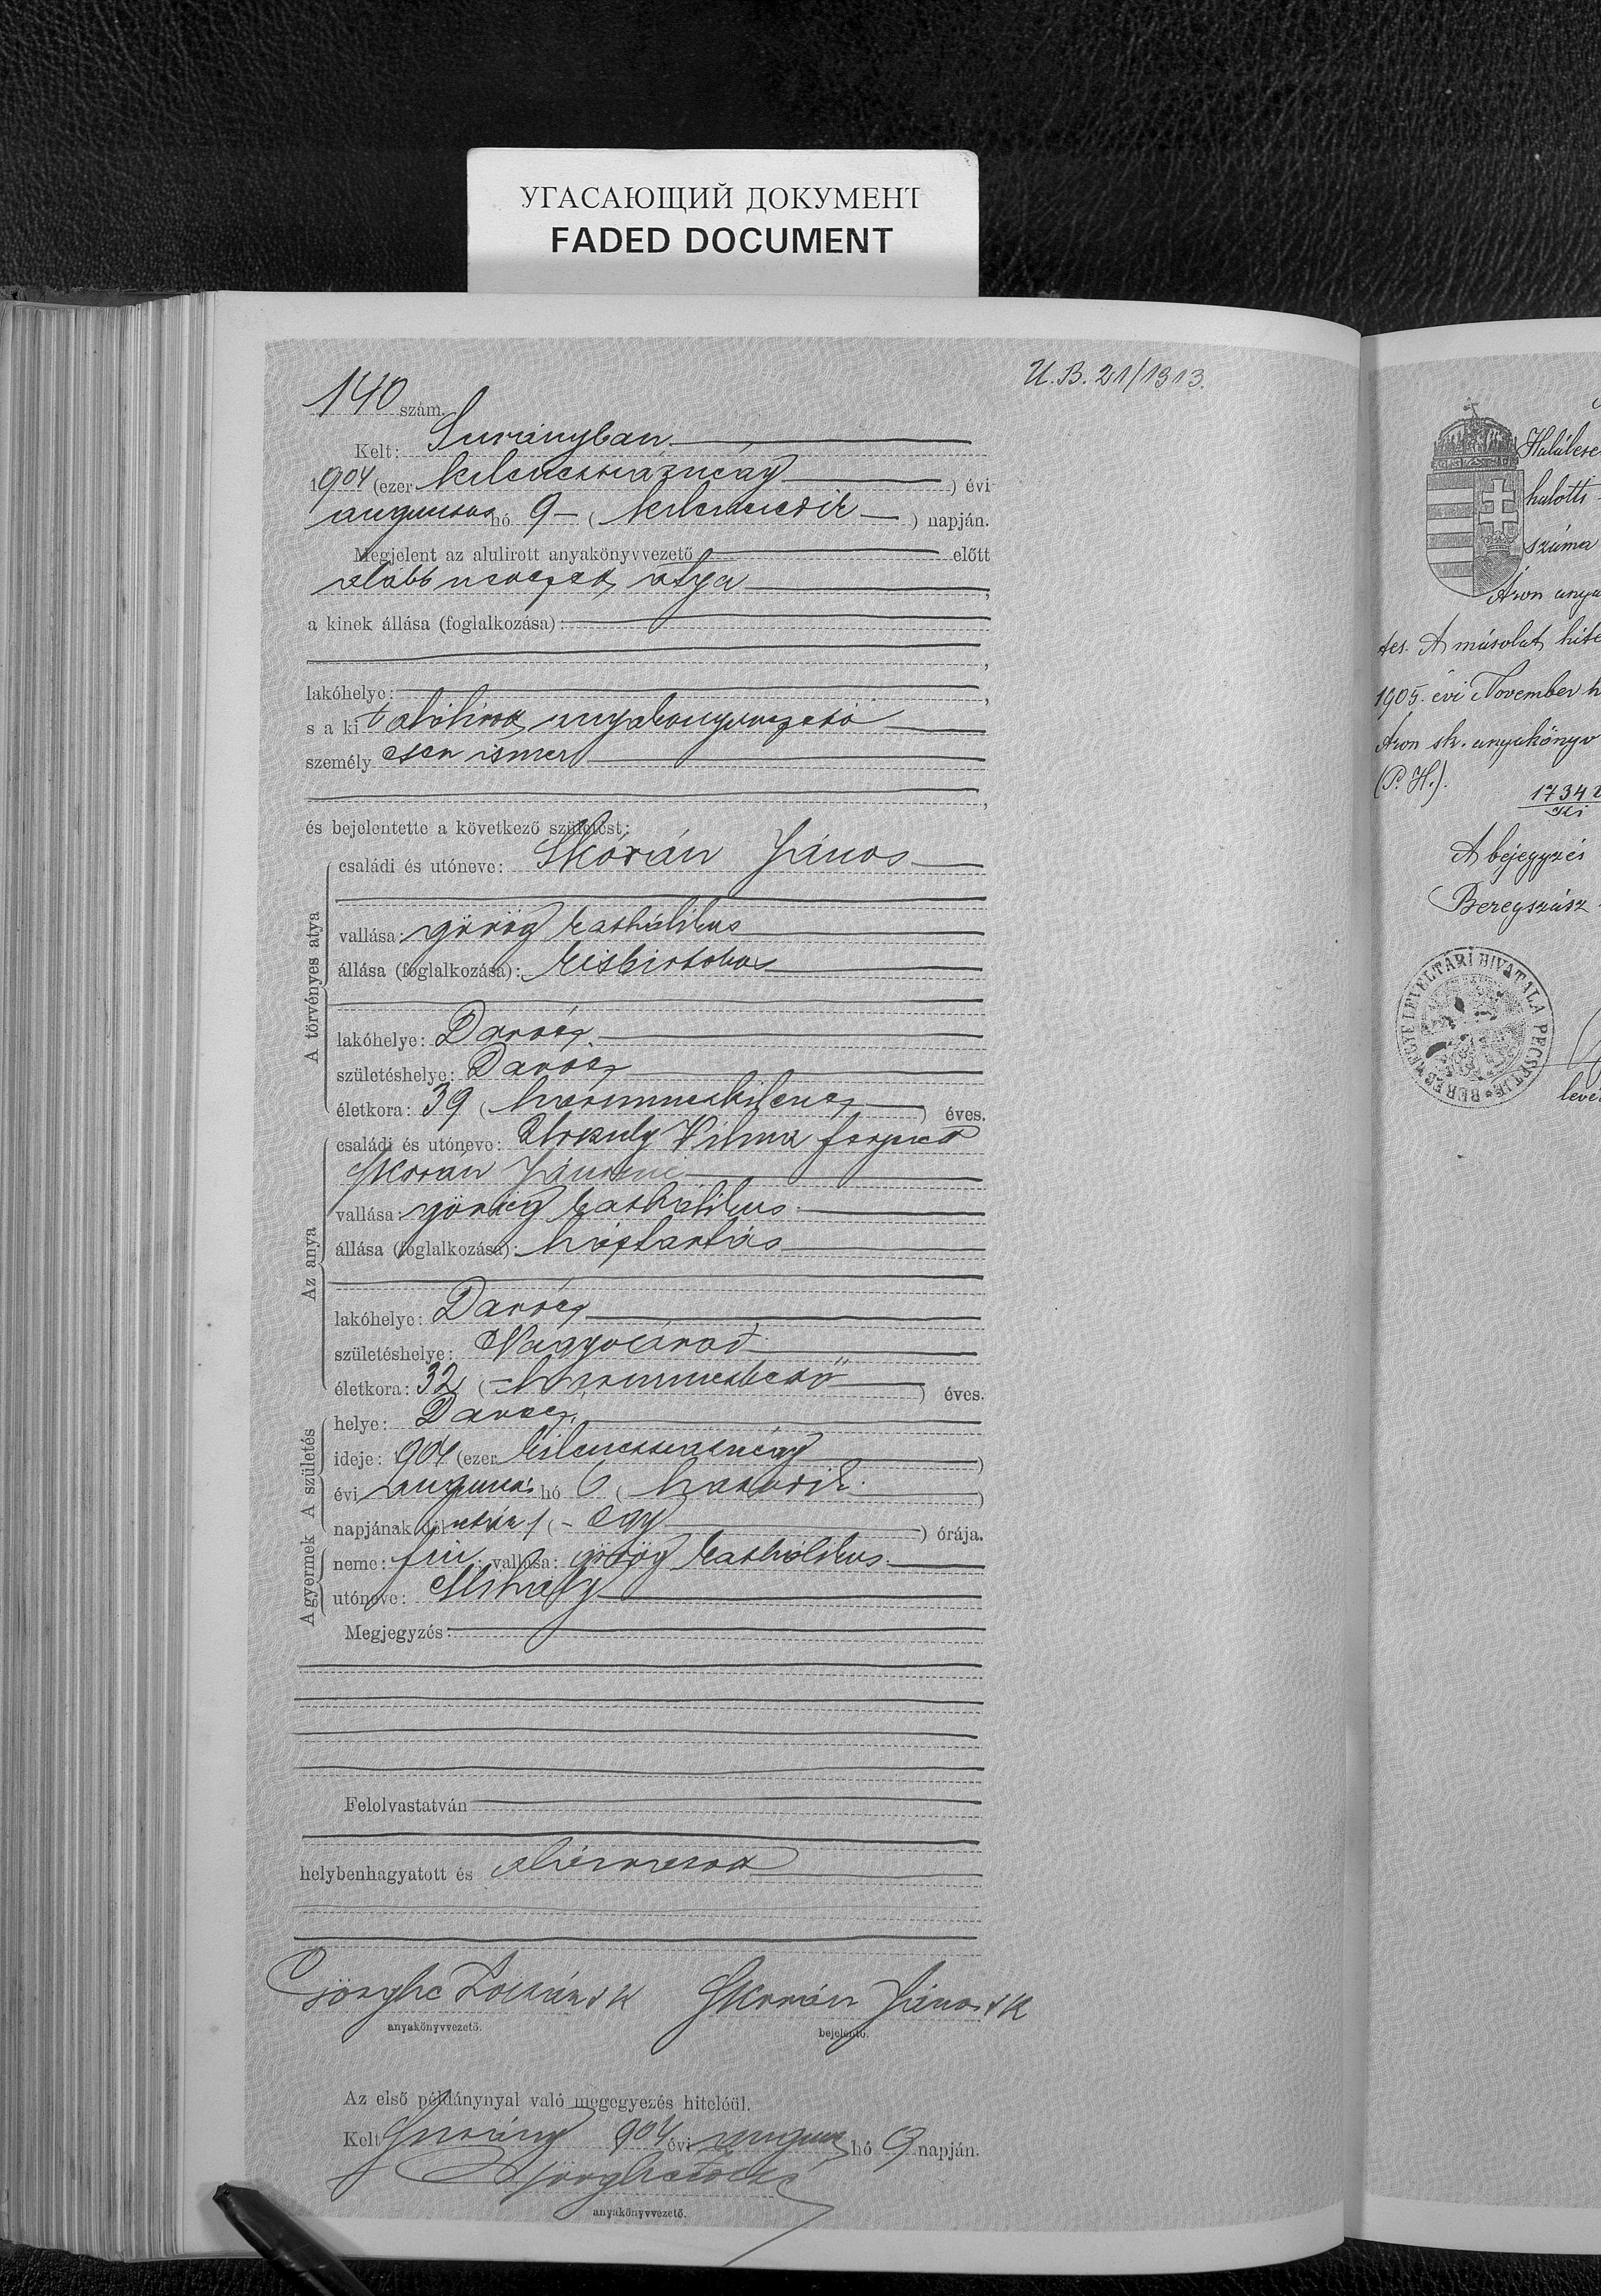 УГАСАЮЩИЙ ДОКУМЕНТ
FADED DOCUMENT
U. B. 21/1313.
140 szám.
Kelt: Surányban
1904 (ezer kilencszáznégy) évi
augusztus hó 9 (kilencedik) napján.
Megjelent az alulirott anyakönyvvezető előtt
alább nevezett atya,
a kinek állása (foglalkozása):
lakóhelye:
s a kit alólirott anyakönyvvezető
személyesen ismer
és bejelentette a következő születést:
A törvényes atya
családi és utóneve: Skórán János
vallása: görög katholikus
állása (foglalkozása): kisbirtokos
lakóhelye: Darócz
születéshelye: Darócz
életkora: 39 (harminczkilencz) éves.
Az anya
családi és utóneve: Vilma férjezett
Skorán Jánosné
vallása: görög katholikus
állása (foglalkozása): háztartás
lakóhelye: Darócz
születéshelye: Nagyvárad
életkora: 32 (harminczkettő) éves.
A születés
helye: Darócz
ideje: 1904 (ezer kilencszáznégy)
évi augusztus hó 6 (hatodik)
napjának délután 1 (egy) órája.
A gyermek
neme: fiú; vallása: görög katholikus
utóneve: Mihály
Megjegyzés:
Felolvastatván
helybenhagyatott és aláiratott
Györghe Zoltán s k Skorán János s k
anyakönyvvezető. bejelentő.
Az első példánynyal való megegyezés hiteléül.
Kelt Surány 904 évi august hó 9 napján.
Györghe
anyakönyvvezető.
Halálese
halotti
száma
Áron anya
tes. A másolat hite
1905. évi November h
Áron sk. anyakönyv
(P. H.).
1734
A bejegyzés
Beregszász
BEREGMEGYE LEVÉLTÁRI HIVATALA PECSÉTJE
levé